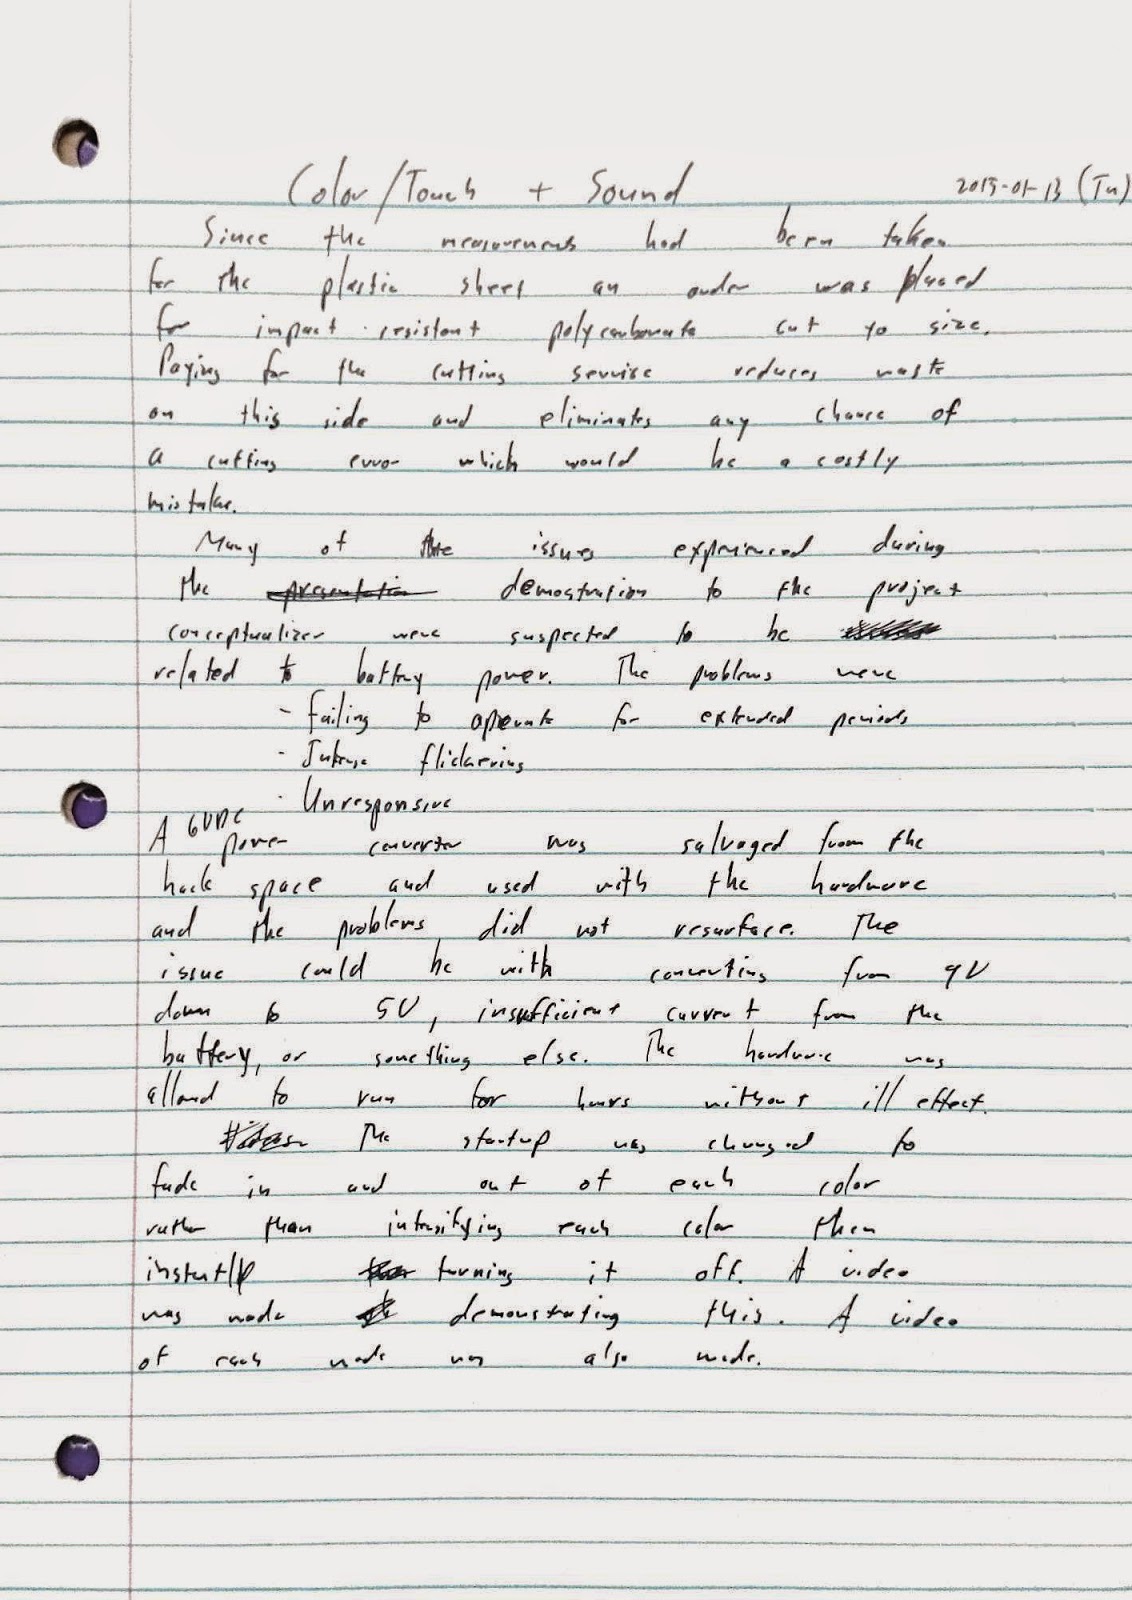 Color/Touch + Sound
2015-01-13 (Tu)
Since the measurements had been taken
for the plastic sheet an order was placed
for impact resistant polycarbonate cut to size.
Paying for the cutting service reduces waste
on this side and eliminates any chance of
a cutting error which would be a costly
mistake.
Many of the issues experienced during
the presentation demostration to the project
conceptualizer were suspected to be
related to battery power. The problems were
- Failing to operate for extended periods
- Intense flickering
- Unresponsive
A 6VDC power converter was salvaged from the
hack space and used with the hardware
and the problems did not resurface. The
issue could be with converting from 9V
down to 5V, insufficient current from the
battery, or something else. The hardware was
allowed to run for hours without ill effect.
The startup was changed to
fade in and out of each color
rather than intensifying each color then
instantly turning it off. A video
was made demonstrating this. A video
of each mode was also made.